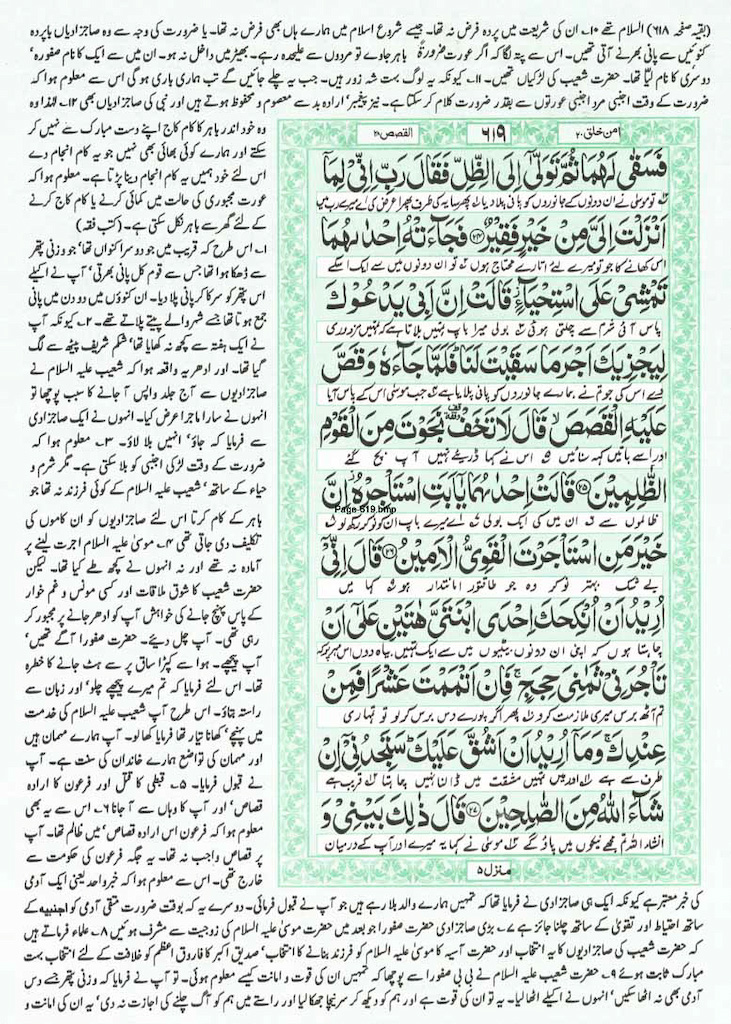 (بقیہ صفحہ ۶۱۸) السلام تھے ۱۰۔ ان کی شریعت میں پردہ فرض نہ تھا۔ جیسے شروع اسلام میں ہمارے ہاں بھی فرض نہ تھا۔ یا ضرورت کی وجہ سے وہ صاجزادیاں باپردہ
کنوئیں سے پانی بھرنے آتی تھیں۔ اس سے پتہ لگا کہ اگر عورت ضرورۃً باہر جاوے تو مردوں سے علیحدہ رہے۔ بھیڑ میں داخل نہ ہو۔ ان میں سے ایک کا نام صفورہ'
دوسری کا نام لیّا تھا۔ حضرت شعیب کی لڑکیاں تھیں۔ ۱۱۔ کیونکہ یہ لوگ بہت شہ زور ہیں۔ جب یہ چلے جائیں گے تب ہماری باری ہو گی اس سے معلوم ہوا کہ
ضرورت کے وقت اجنبی مرد اجنبی عورتوں سے بقدر ضرورت کلام کر سکتا ہے۔ نیز پیغمبر' ارادہ بد سے معصوم و محفوظ ہوتے ہیں اور نبی کی صاجزادیاں بھی ۱۲۔ لہٰذا وہ
وہ خود اندر باہر کا کام کاج اپنے دست مبارک سے نہیں کر
سکتے اور ہمارے کوئی بھائی بھی نہیں جو یہ کام انجام دے
اس لئے خود ہمیں یہ کام انجام دینا پڑتا ہے۔ معلوم ہوا کہ
عورت مجبوری کی حالت میں کمائی کرنے یا کام کاج کرنے
کے لئے گھر سے باہر نکل سکتی ہے۔ (کتب فقہ)
۱۔ اس طرح کہ قریب میں جو دوسرا کنواں تھا' جو وزنی پتھر
سے ڈھکا ہوا تھا جس سے قوم کل پانی بھرتی' آپ نے اکیلے
اس پتھر کو سرکا کر پانی پلا دیا۔ ان کنوؤں میں دو دن میں پانی
جمع ہوتا تھا جسے شہر والے پیتے پلاتے تھے۔ ۲۔ کیونکہ آپ
نے ایک ہفتہ سے کچھ نہ کھایا تھا' شکم شریف پیٹھ سے لگ
گیا تھا۔ اور ادھر یہ واقعہ ہوا کہ شعیب علیہ السلام نے
صاجزادیوں سے آج جلد واپس آ جانے کا سبب پوچھا تو
انہوں نے سارا ماجرا عرض کیا۔ انہوں نے ایک صاجزادی
سے فرمایا کہ جاؤ' انہیں بلا لاؤ۔ ۳۔ معلوم ہوا کہ
ضرورت کے وقت لڑکی اجنبی کو بلا سکتی ہے۔ مگر شرم و
حیاء کے ساتھ' شعیب علیہ السلام کے کوئی فرزند نہ تھا جو
باہر کے کام کرتا اس لئے صاجزادیوں کو ان کاموں کی
تکلیف دی جاتی تھی ۴۔ موسیٰ علیہ السلام اجرت لینے پر
آمادہ نہ تھے اور نہ انہوں نے کچھ طے کیا تھا۔ لیکن
حضرت شعیب کا شوق ملاقات اور کسی مونس و غم خوار
کے پاس پہنچ جانے کی خواہش آپ کو ادھر جانے پر مجبور کر
رہی تھی۔ آپ چل دیئے۔ حضرت صفورا آگے تھیں'
آپ پیچھے۔ ہوا سے کپڑا ساق پر سے ہٹ جانے کا خطرہ
تھا۔ اس لئے فرمایا کہ تم میرے پیچھے چلو' اور زبان سے
راستہ بتاؤ۔ اس طرح آپ شعیب علیہ السلام کی خدمت
میں پہنچے' کھانا تیار تھا فرمایا کھا لو۔ آپ ہمارے مہمان ہیں
اور مہمان کی تواضع ہمارے خاندان کی سنت ہے۔ آپ
نے قبول فرمایا۔ ۵۔ قبطی کا قتل اور فرعون کا ارادہ
قصاص' اور آپ کا وہاں سے آ جانا ۶۔ اس سے یہ بھی
معلوم ہوا کہ فرعون اس ارادہ قصاص' میں ظالم تھا۔ آپ
پر قصاص واجب نہ تھا۔ یہ جگہ فرعون کی حکومت سے
خارج تھی۔ اس سے معلوم ہوا کہ خبر واحد یعنی ایک آدمی
امن خلق ۲۰
۶۱۹
القصص ۲۸
فَسَقٰى لَهُمَا ثُمَّ تَوَلّٰۤى اِلَى الظِّلِّ فَقَالَ رَبِّ اِنِّیْ لِمَاۤ
تو موسیٰ نے ان دونوں کے جانوروں کو پانی پلا دیا پھر سایہ کی طرف پھرا عرض کی اے میرے رب میں
اَنْزَلْتَ اِلَیَّ مِنْ خَیْرٍ فَقِیْرٌ ﴿۲۴﴾ فَجَآءَتْهُ اِحْدٰىهُمَا
اس کھانے کا جو تو میرے لئے اتارے محتاج ہوں تو ان دونوں میں سے ایک اسکے
تَمْشِیْ عَلَى اسْتِحْیَآءٍ قَالَتْ اِنَّ اَبِیْ یَدْعُوْكَ
پاس آئی شرم سے چلتی ہوئی بولی میرا باپ تمہیں بلاتا ہے کہ تمہیں مزدوری
لِیَجْزِیَكَ اَجْرَ مَا سَقَیْتَ لَنَا فَلَمَّا جَآءَهٗ وَ قَصَّ
دے اس کی جو تم نے ہمارے جانوروں کو پانی پلایا ہے جب موسیٰ اس کے پاس آیا
عَلَیْهِ الْقَصَصَ قَالَ لَا تَخَفْ نَجَوْتَ مِنَ الْقَوْمِ
اور اسے باتیں کہہ سنائیں اس نے کہا ڈریئے نہیں آپ بچ گئے
الظّٰلِمِیْنَ ﴿۲۵﴾ قَالَتْ اِحْدٰىهُمَا یٰۤاَبَتِ اسْتَاْجِرْهُ اِنَّ
Page 619.bmp
ظالموں سے ان میں کی ایک بولی اے میرے باپ ان کو نوکر رکھ لو
خَیْرَ مَنِ اسْتَاْجَرْتَ الْقَوِیُّ الْاَمِیْنُ ﴿۲۶﴾ قَالَ اِنِّیْۤ
بے شک بہتر نوکر وہ جو طاقتور امانتدار ہو کہا میں
اُرِیْدُ اَنْ اُنْكِحَكَ اِحْدَى ابْنَتَیَّ هٰتَیْنِ عَلٰۤى اَنْ
چاہتا ہوں کہ اپنی ان دونوں بیٹیوں میں سے ایک تمہیں بیاہ دوں اس مہر پر کہ
تَاْجُرَنِیْ ثَمٰنِیَ حِجَجٍ فَاِنْ اَتْمَمْتَ عَشْرًا فَمِنْ
تم آٹھ برس میری ملازمت کرو پھر اگر پورے دس برس کر لو تو تمہاری
عِنْدِكَ وَ مَاۤ اُرِیْدُ اَنْ اَشُقَّ عَلَیْكَ سَتَجِدُنِیْۤ اِنْ
طرف سے ہے اور میں تمہیں مشقت میں ڈالنا نہیں چاہتا قریب ہے
شَآءَ اللّٰهُ مِنَ الصّٰلِحِیْنَ ﴿۲۷﴾ قَالَ ذٰلِكَ بَیْنِیْ وَ
انشاء اللہ تم مجھے نیکوں میں پاؤ گے موسیٰ نے کہا یہ میرے اور آپ کے درمیان
منزل ۵
کی خبر معتبر ہے کیونکہ ایک ہی صاجزادی نے فرمایا تھا کہ تمہیں ہمارے والد بلا رہے ہیں جو آپ نے قبول فرمائی۔ دوسرے یہ کہ بوقت ضرورت متقی آدمی کو اجنبیہ کے
ساتھ احتیاط اور تقویٰ کے ساتھ چلنا جائز ہے ۷۔ بڑی صاجزادی حضرت صفورا جو بعد میں حضرت موسیٰ علیہ السلام کی زوجیت سے مشرف ہوئیں ۸۔ علماء فرماتے ہیں
کہ حضرت شعیب کی صاجزادیوں کا یہ انتخاب اور حضرت آسیہ کا موسیٰ علیہ السلام کو فرزند بنانے کا انتخاب' صدیق اکبر کا فاروق اعظم کو خلافت کے لئے انتخاب بہت
مبارک ثابت ہوئے ۹۔ حضرت شعیب علیہ السلام نے بی بی صفورا سے پوچھا کہ تمہیں ان کی قوت و امانت کیسے معلوم ہوئی۔ تو آپ نے فرمایا کہ وزنی پتھر جسے دس
آدمی بھی نہ اٹھا سکیں' انہوں نے اکیلے اٹھا لیا۔ یہ تو ان کی قوت ہے اور ہم کو دیکھ کر سر نیچا جھکا لیا اور راستے میں ہم کو آگے چلنے کی اجازت نہ دی' یہ ان کی امانت و